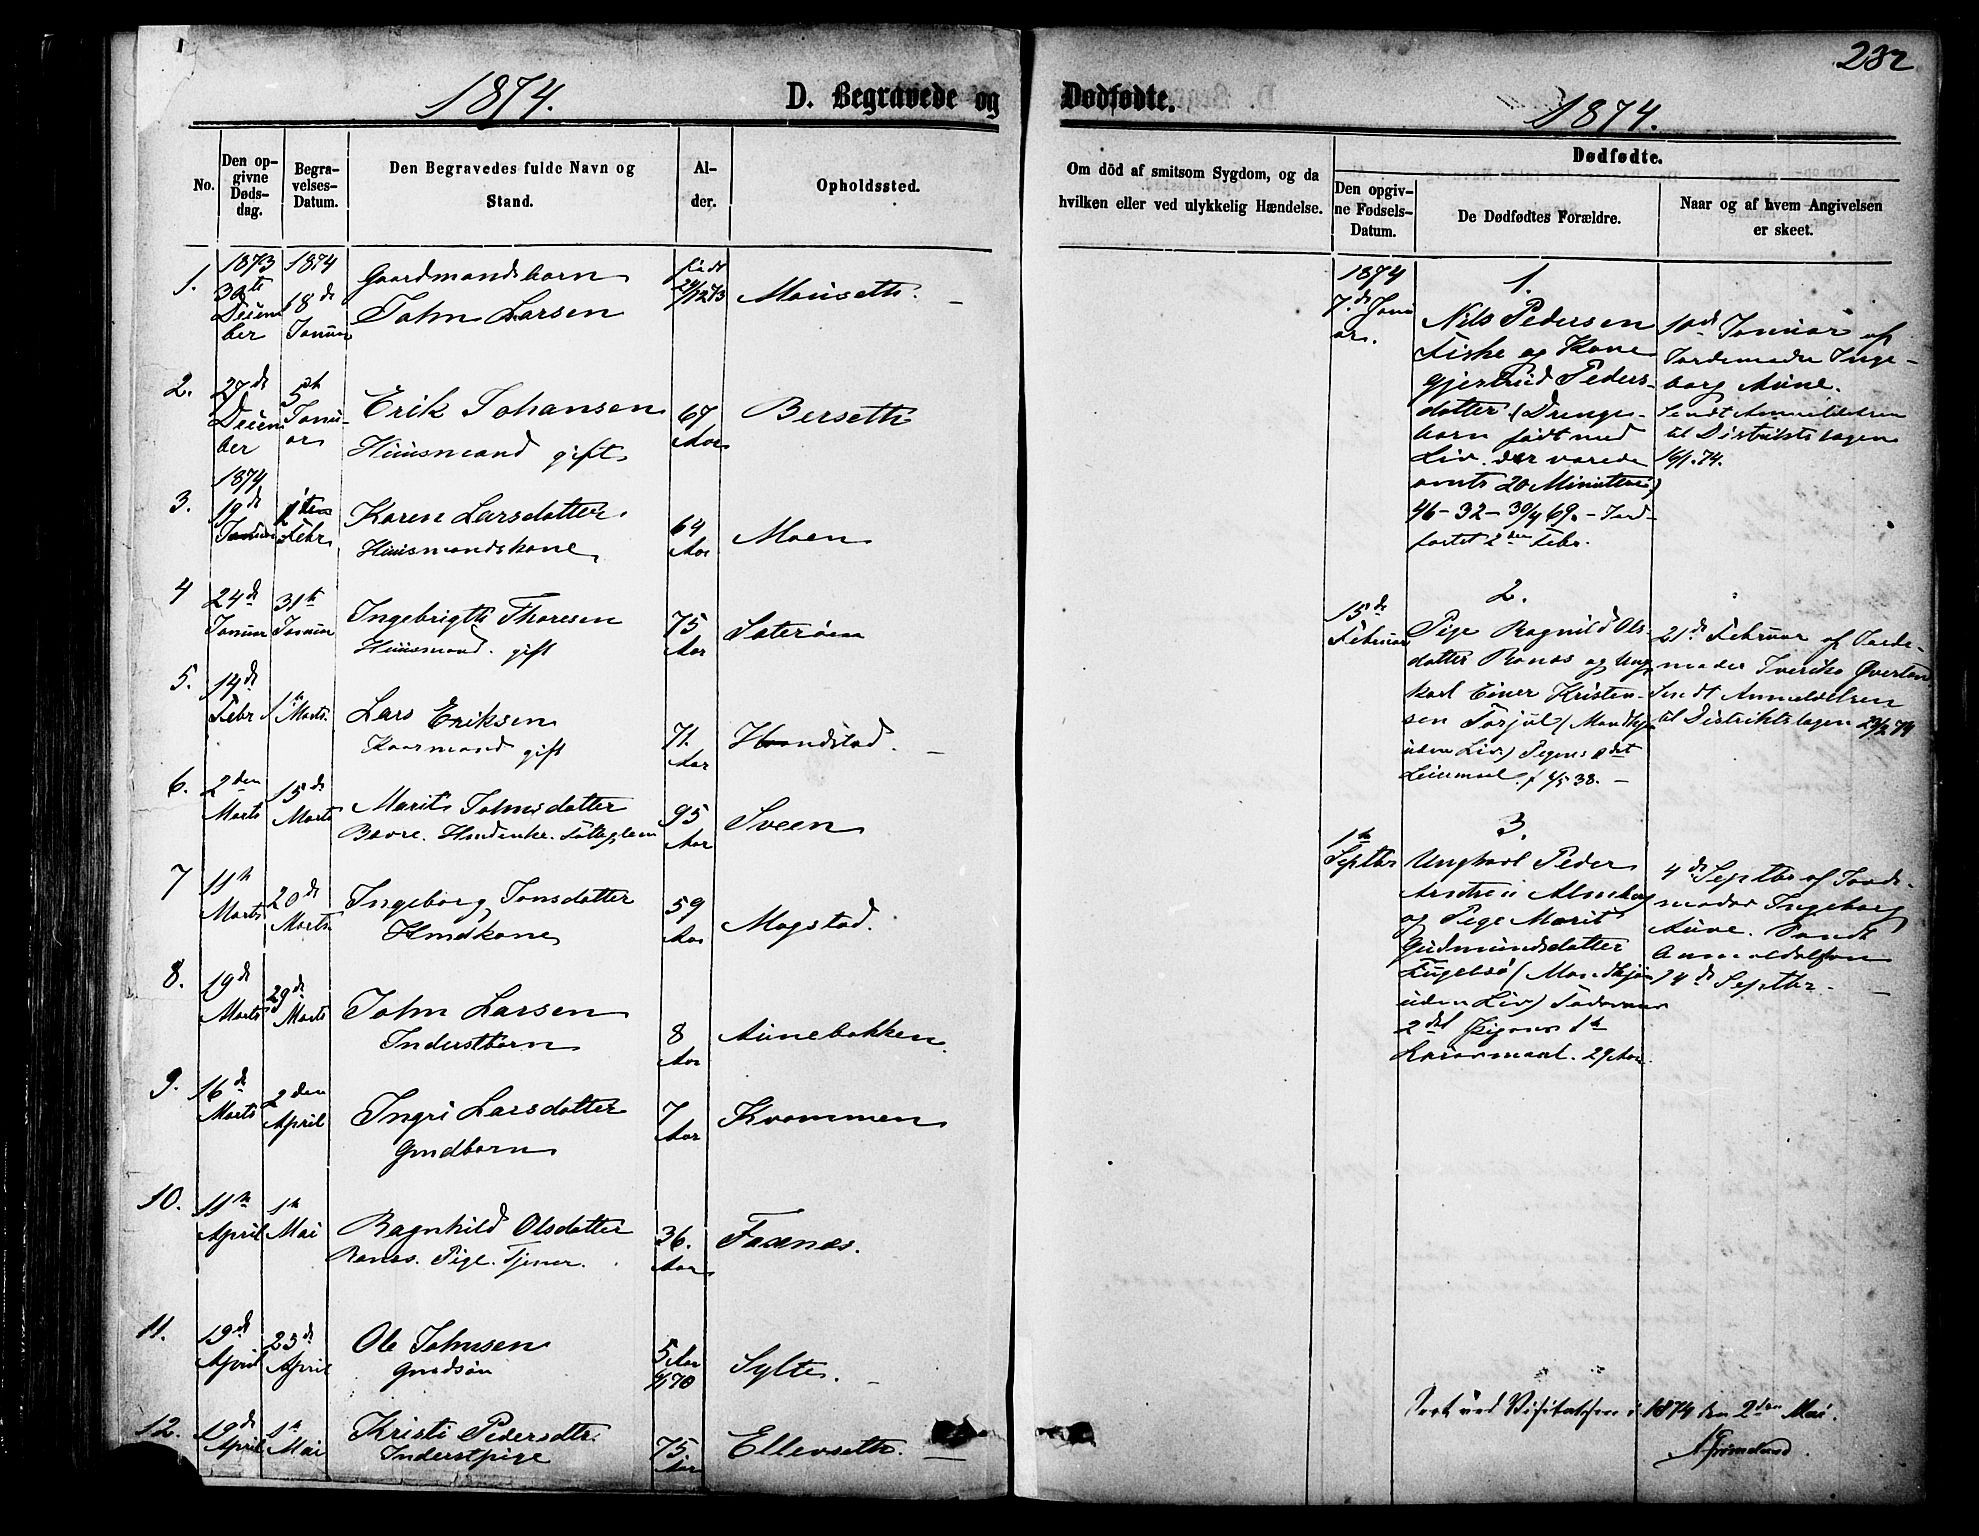 232
1874. D. Begravede og Dødfødte. 1874.
No.
Den opgivne Dødsdag.
Begravelses-Datum.
Den Begravedes fulde Navn og Stand.
Alder.
Opholdssted.
Om död af smitsom Sygdom, og da hvilken eller ved ulykkelig Hændelse.
Dødfødte.
Den opgivne Fødsels-Datum.
De Dødfødtes Forældre.
Naar og af hvem Angivelsen er skeet.
1. 1873 30te December 1874 18de Januar Gaardmandsbarn
John Larsen født 29/12 73
2. 27de December 5te Januar Erik Johansen 67 Aar Berseth
Huusmand gift
3. 1874 19de Januar 2den Febr Karen Larsdatter 64 Aar Moen
Huusmandskone
4 24de Januar 31te Januar Ingebrigth Thoresen 75 Aar Sæterøen
Huusmand. gift
5. 14de Febr 1te Marts Lars Eriksen 71. Aar Handstad.
Kaarmand gift
6. 2den Marts 15de Marts Marit Johnsdatter 95 Aar Sveen
7 11te Marts 20de Marts Ingeborg Jonsdatter 59 Aar Magstad.
Hmdkone
8. 19de Marts 29de Marts John Larsen 8 Aar Aunebakken.
Inderstbarn
9. 16de Marts 2den April Ingri Larsdatter 7 Aar Kvammen
Gmdbarn
10. 11te April 1te Mai Ragnhild Olsdatter 36. Aar Faxnes.
Ranes. Pige. Tjener.
11. 19de April 25de April Ole Johnsen 5 Aar Sylte.
Gmdsøn
12. 19de April 1te Mai Kristi Pedersdtr. 75 Aar Ellevseth.
Inderstpige
1874
7de Januar.
1.
Nils Pedersen
Fiske og Kone
Gjertrud Peders-
datter (Drenge-
barn født med
Liv. der varede
omtr 20 Minutter)
46 - 32 - 30/4 69. - Jord-
fæstet 2den Febr.
10de Januar af
Jordemoder Inge-
borg Aune.
Sendt Anmeldelsen
til Distriktslægen
16/1. 74.
15de Februar
2.
Pige Ragnild Ols-
datter Ranes og Ung-
karl Einer Kristen-
sen Torjul (Mandkjøn
uden Liv) Pigens 1det
Leiermaal. f 4/5 38. -
21de Februar af Jorde-
moder
Sendt Anmeldelsen
til Distriktslægen 23/2 74
1te Septbr
3.
Ungkarl Peder
og Pige Marit
Gudmundsdatter
Fugelsø (Mandkjøn
uden Liv) Faderens
2det Pigens 1te
Leiermaal. 29 Aar.
4de Septbr af Jorde-
moder Ingeborg
Aune. Sendt
Anmeldelsen
4de Septbr. -
Seet ved Visitatsen i 1874 den 2den Mai.
Grimelund.